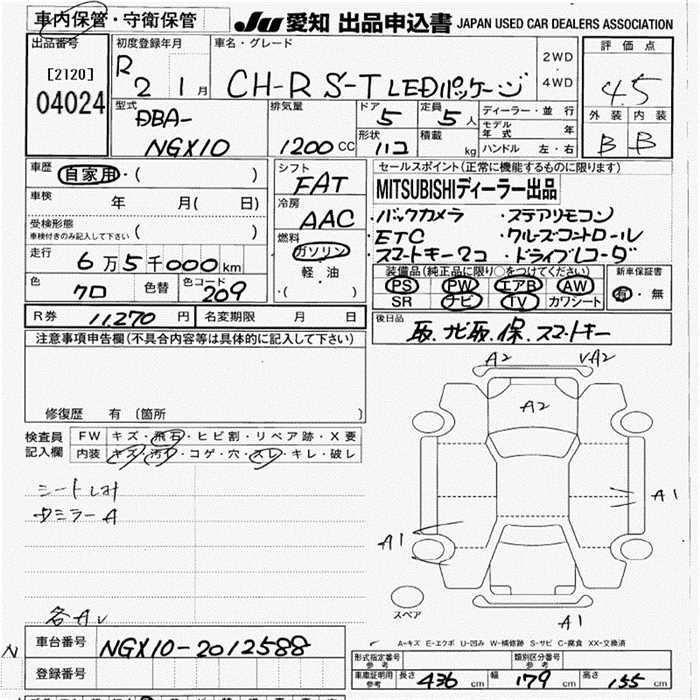 車内保管・守衛保管
JU 愛知 出品申込書 JAPAN USED CAR DEALERS ASSOCIATION
出品番号
[2120]
04024
初度登録年月
R2 1月
車名・グレード
CH-R S-T LEDパッケージ
2WD
・
4WD
評価点
4.5
外装 内装
B B
型式
DBA-
NGX10
排気量
1200 CC
ドア
5
定員
5人
形状
ハコ
積載
kg
ディーラー・並行
モデル年式 年
ハンドル 左・右
車歴
自家用・( )
車検 年 月( 日)
受検形態
車検付きのみ記入して下さい ( )
走行
6万5千000km
色
クロ
色替
色コード
209
シフト
FAT
冷房
AAC
燃料
ガソリン
・
軽・油
・( )
セールスポイント(正常に機能するものに限ります)
MITSUBISHIディーラー出品
・バックカメラ ・ステアリモコン
・ETC ・クルーズコントロール
・スマートキー2コ ・ドライブレコーダ
装備品(純正品に限り○をつけてください)
PS PW エアB AW
SR ナビ TV カワシート
新車保証書
有・無
R券 11,270円
名変期限 月 日
後日品
取.ナビ取.保.スマートキー
注意事項申告欄(不具合内容等は具体的に記入して下さい)
修復歴 有〔箇所 〕
検査員記入欄
FW キズ・飛石・ヒビ割・リペア跡・X要
内装 キズ・汚れ・コゲ・穴・スレ・キレ・破レ
シートしみ
ミラーA
各A
A2 A2
A2
A1
A1
A1
スペア
A-キズ E-エクボ U-凹み W-補修跡 S-サビ C-腐食 XX-交換済
車台番号 NGX10-2012588
登録番号
形式指定番号 参考
類別区分番号 参考
車庫証明用 参考
長さ 436 cm 幅 179 cm 高さ 155 cm